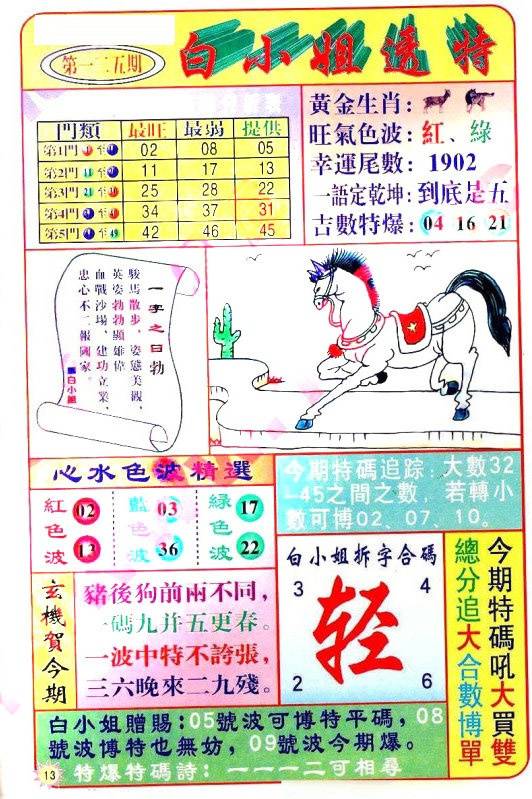 第一二五期
白小姐透特
門類 最旺 最弱 提供
第1門 至 02 08 05
第2門 至 11 17 13
第3門 至 25 28 22
第4門 至 34 37 31
第5門 至49 42 46 45
黃金生肖：
旺氣色波：紅、綠
幸運尾數：1902
一語定乾坤：到底是五
吉數特爆：04 16 21
一字之曰勃
駿馬散步，姿態美觀，
英姿勃勃顯雄偉
血戰沙場，建功立業，
忠心不二報國家。
白小姐
心水色波精選
紅色波 02 13
藍色波 03 36
綠色波 17 22
今期特碼追踪：大數32
-45之間之數，若轉小
數可博02、07、10。
玄機賀今期
豬後狗前兩不同，
一碼九并五更春。
一波中特不誇張，
三六晚來二九殘。
白小姐拆字合碼
3 4
轻
2 6
今期特碼吼大買雙
總分追大合數博單
白小姐贈賜：05號波可博特平碼，08
號波博特也無妨，09號波今期爆。
13 特爆特碼詩：一一一二可相尋